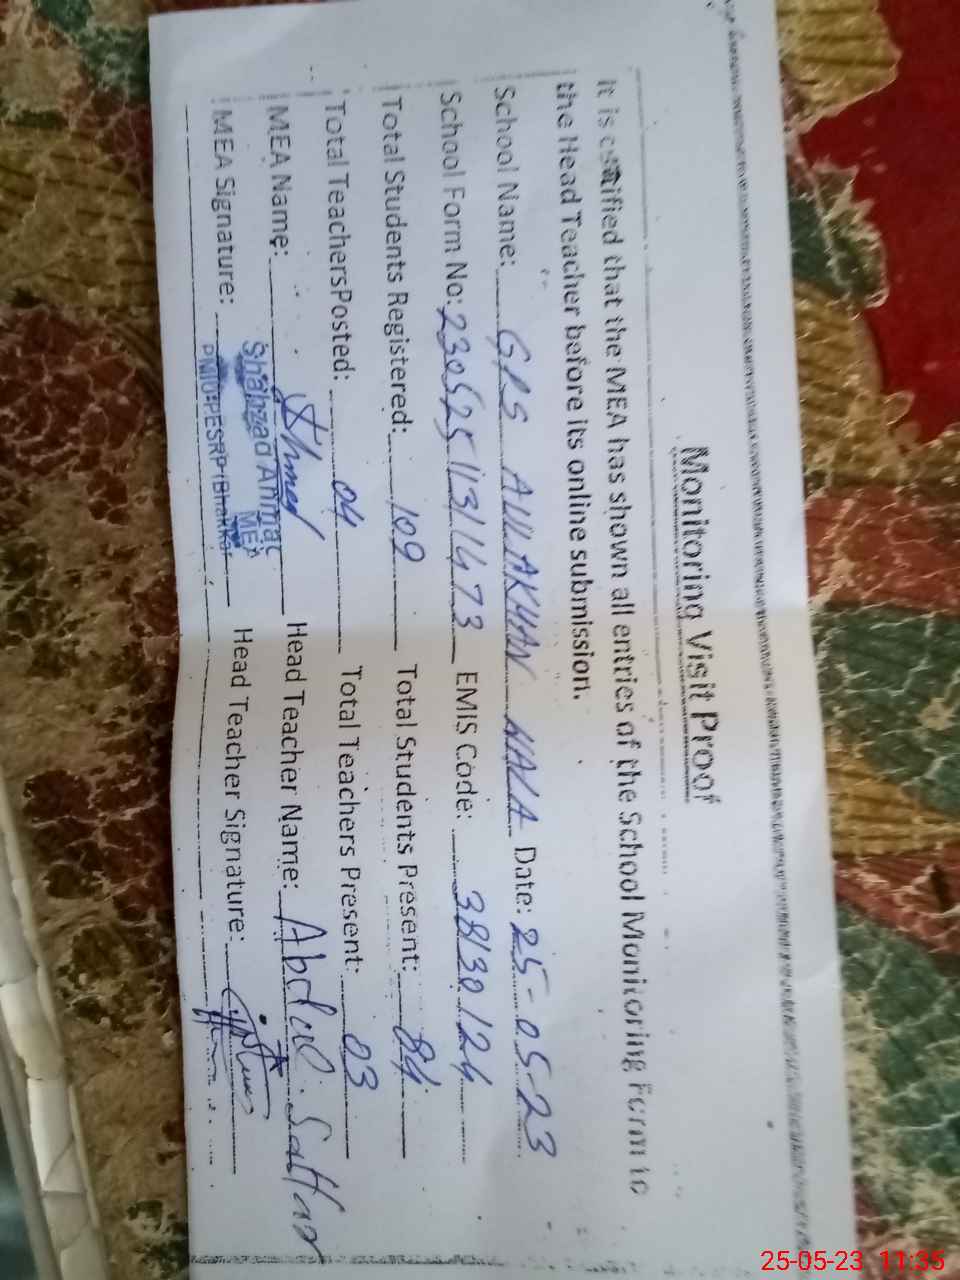 Monitoring Visit Proof
It is certified that the MEA has shown all entries of the School Monitoring Form to
the Head Teacher before its online submission.
School Name: GPS AULAKHAN NALA Date: 25-05-23
School Form No: 23052511311473 EMIS Code: 38130124
Total Students Registered: 109 Total Students Present: 84
Total TeachersPosted: 04 Total Teachers Present: 03
MEA Name: Head Teacher Name: Abdul Sattar
Shahzad Ahmad
MEA
MEA Signature: Head Teacher Signature:
PMIU-PESRP(Bhakkar
25-05-23 11:35